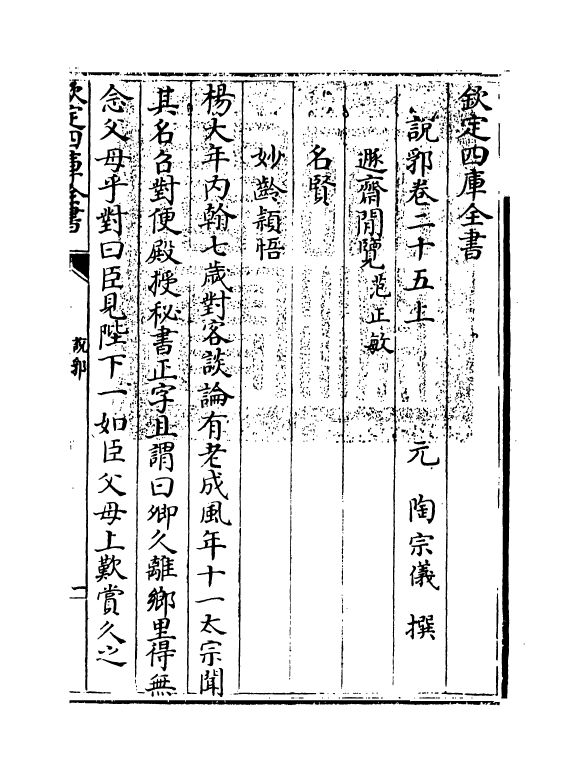 欽定四庫全書
說郛卷二十五上　元　陶宗儀　撰
遯齋閒覽范正敏
名賢
妙齡穎悟
楊大年內翰七歲對客談論有老成風年十一太宗聞
其名召對便殿授秘書正字且謂曰卿久離鄉里得無
念父母乎對曰臣見陛下一如臣父母上歎賞久之
欽定四庫全書
說郛
一